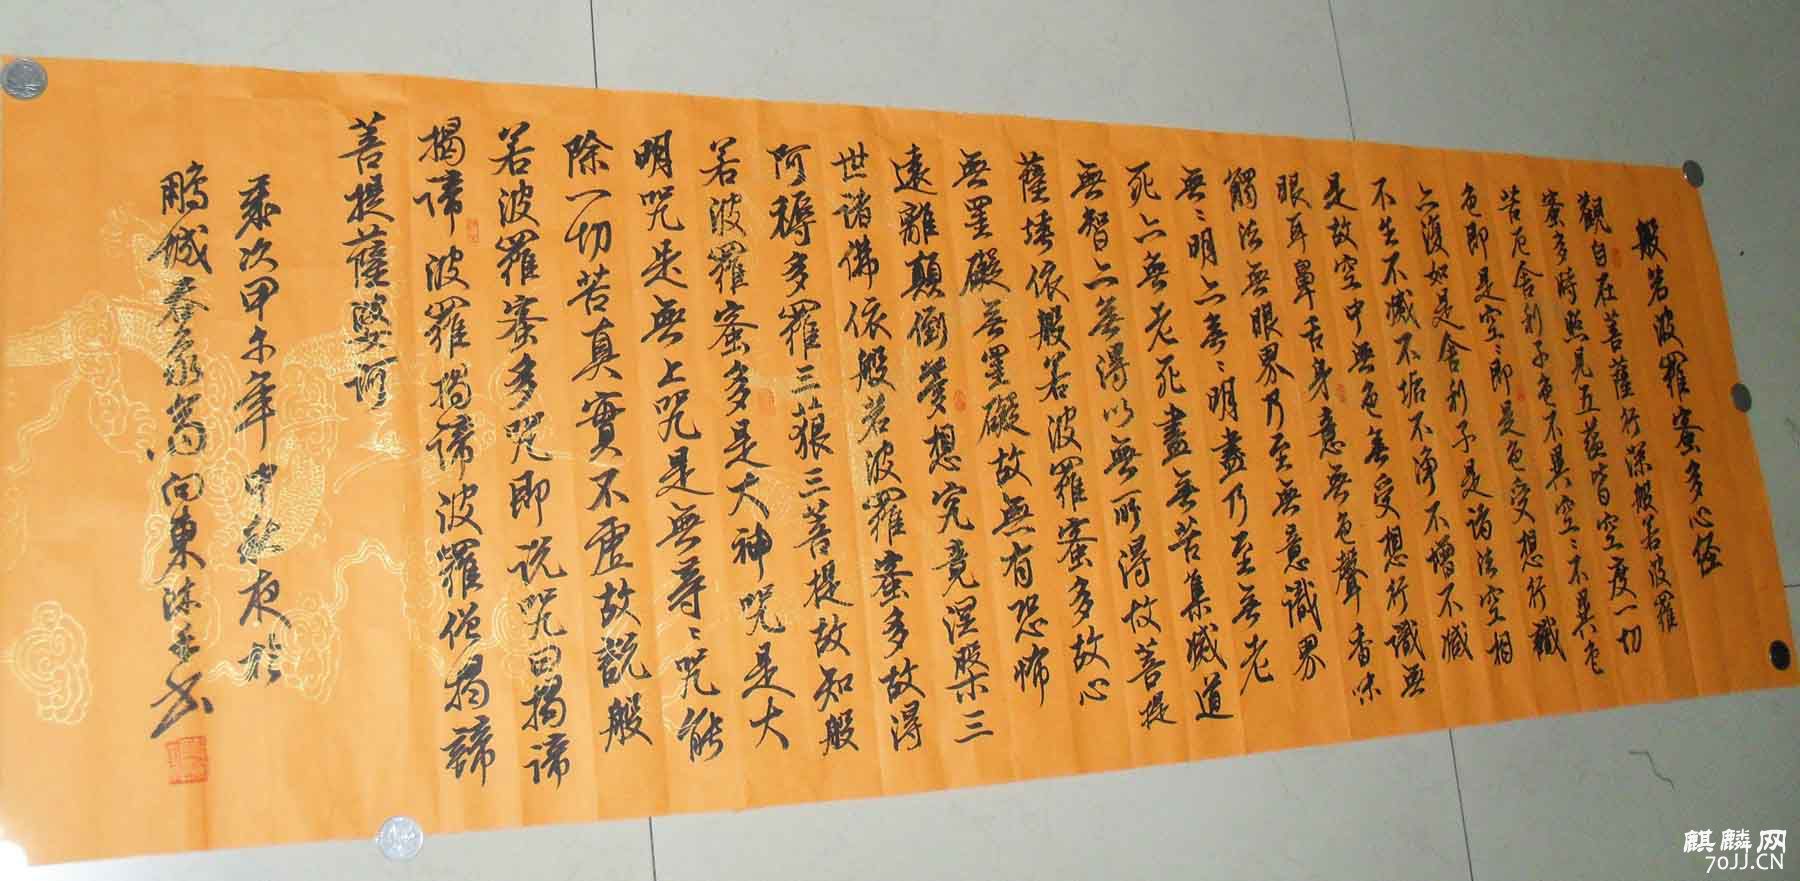 般若波羅蜜多心经
觀自在菩薩行深般若波羅
蜜多時照見五蕴皆空度一切
苦厄舍利子色不異空〻不異色
色即是空〻即是色受想行識
亦復如是舍利子是诸法空相
不生不滅不垢不净不增不减
是故空中無色無受想行識無
眼耳鼻舌身意無色聲香味
觸法無眼界乃至無意識界
無〻明亦無〻明盡乃至無老
死亦無老死盡無苦集滅道
無智亦無得以無所得故菩提
薩埵依般若波羅蜜多故心
無罣礙無罣礙故無有恐怖
遠離顛倒夢想究竟涅槃三
世诸佛依般若波羅蜜多故得
阿耨多羅三藐三菩提故知般
若波羅蜜多是大神咒是大
明咒是無上咒是無等〻咒能
除一切苦真實不虚故說般
若波羅蜜多咒即说咒曰揭谛
揭谛波羅揭谛波羅僧揭諦
菩提薩婆訶
歲次甲午年中秋夜於
鵬城春 向東沐手书
麒麟网
70JJ.CN